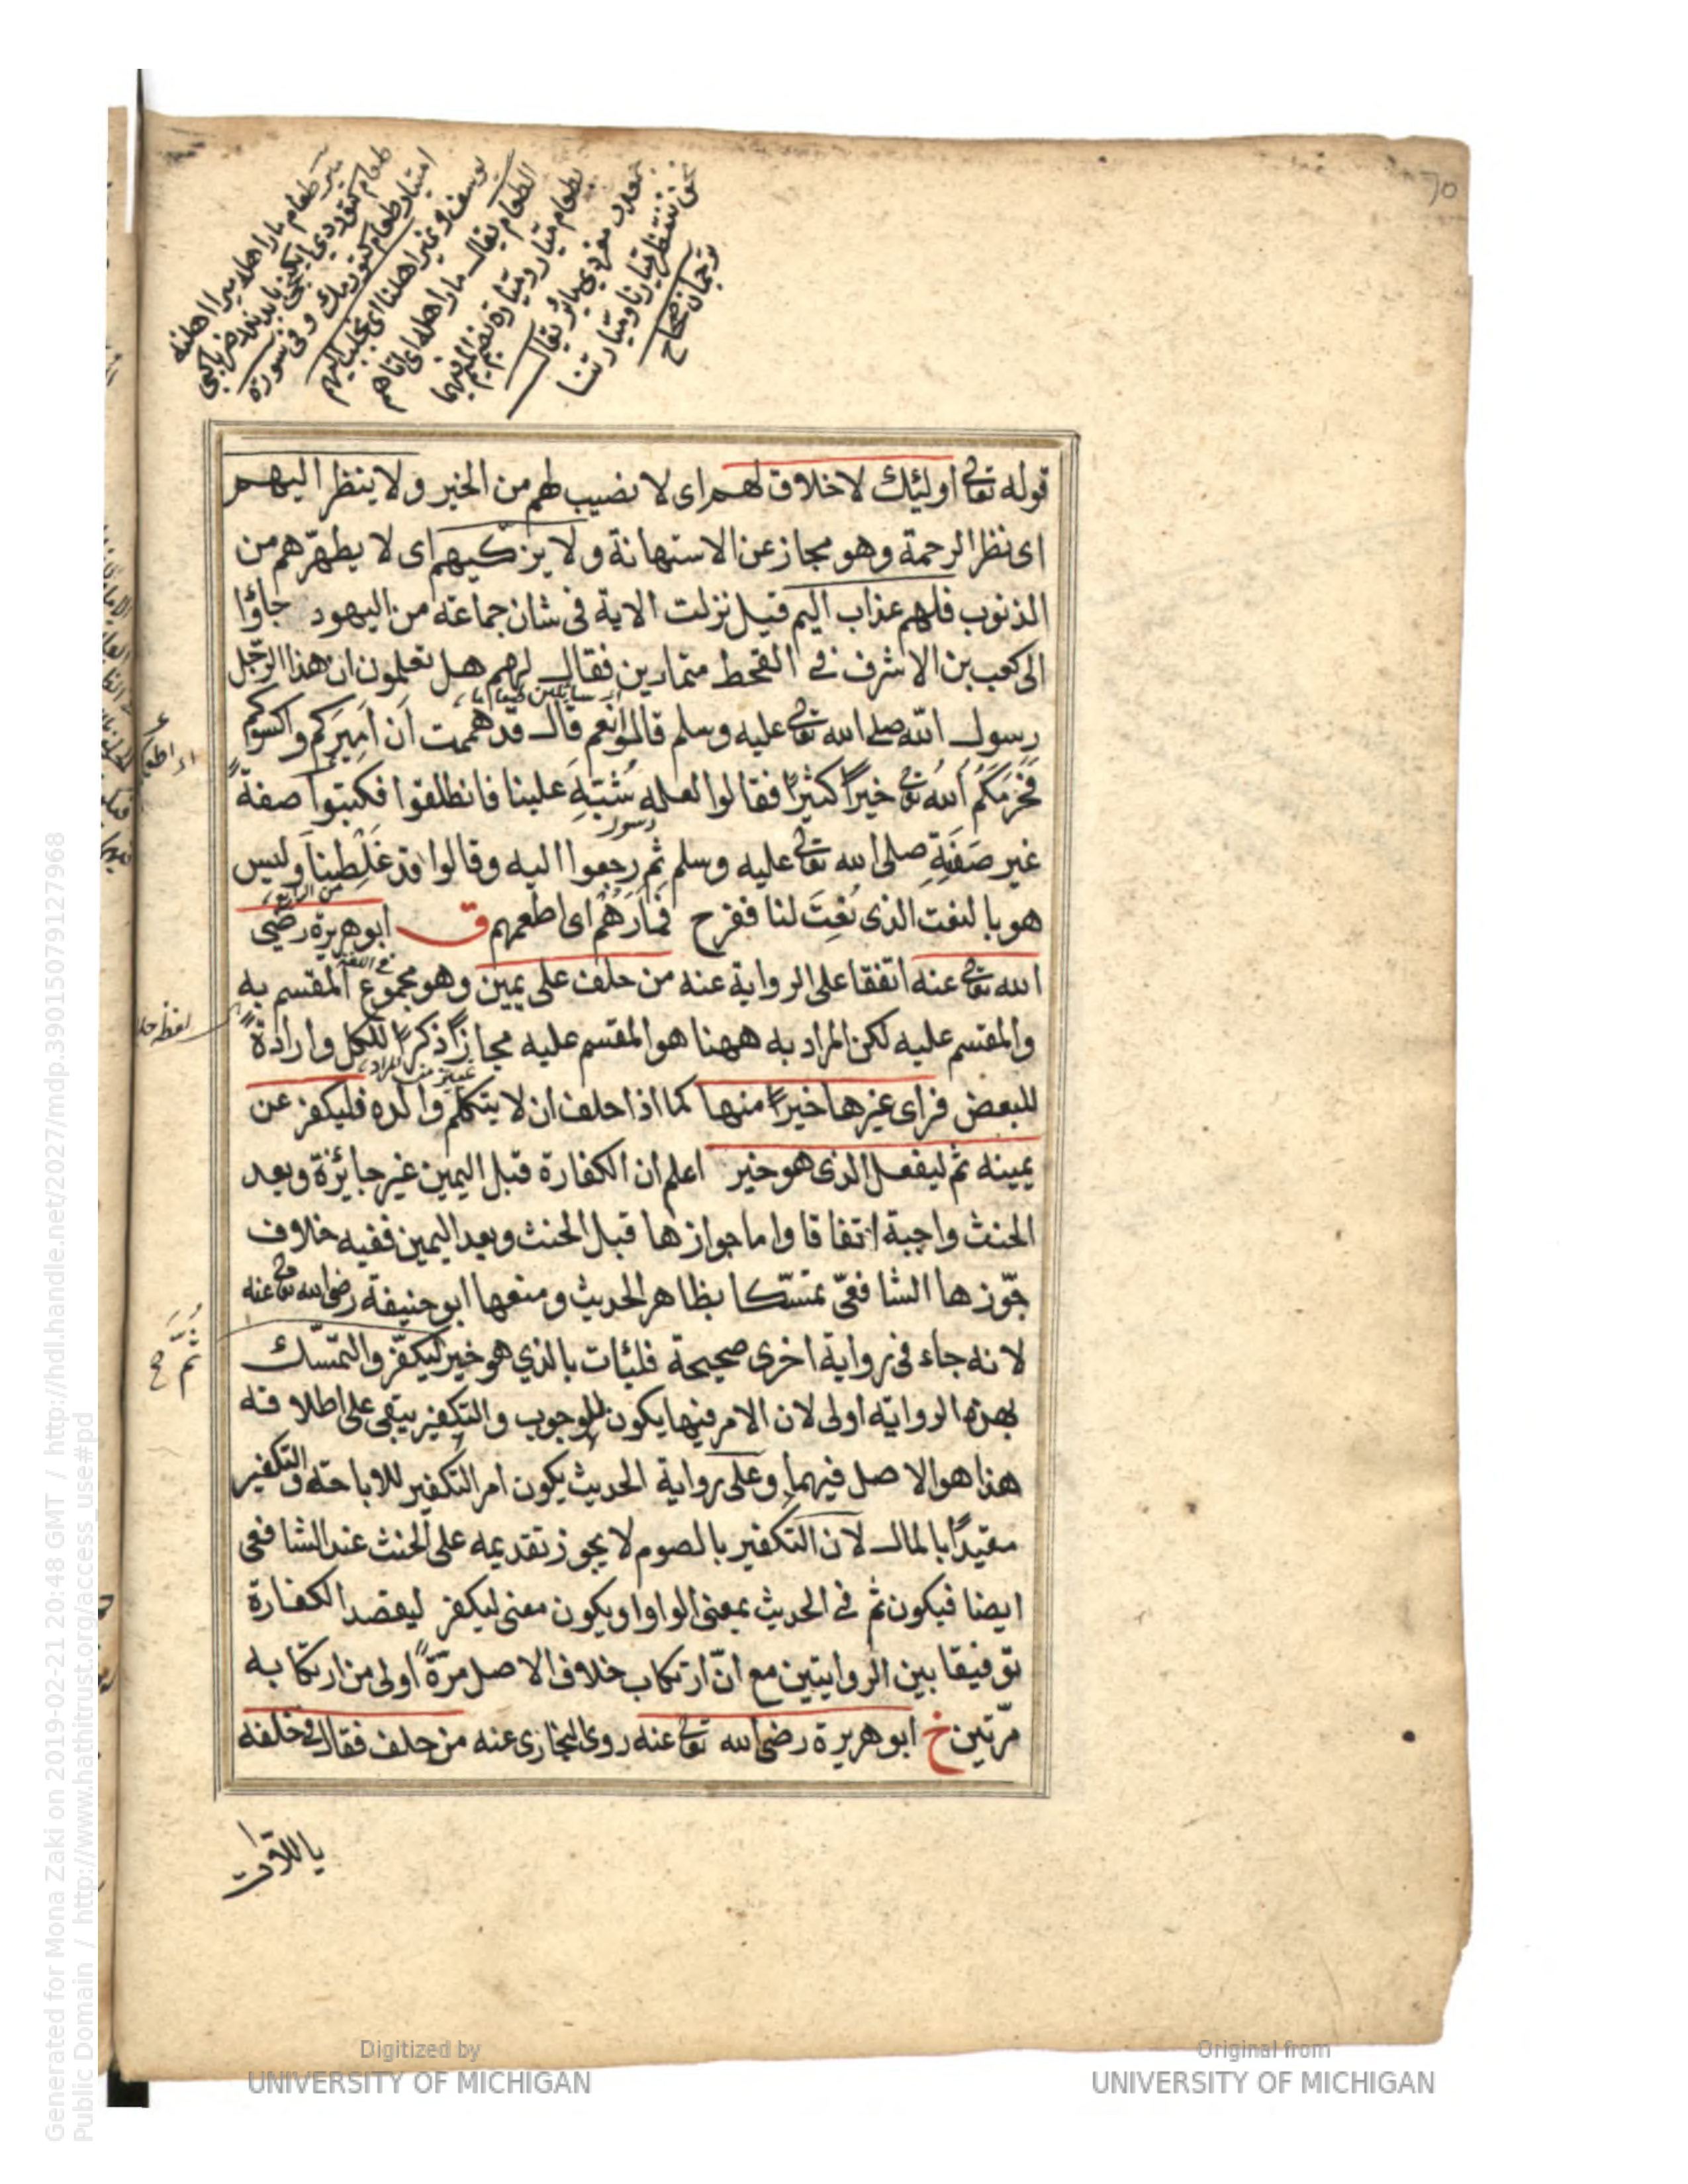 70
ميّر طعام مار اهله ميرا اهلنه
طعام كتوردى
امتيار طعام كتورمك وفى سورة
يوسف ونمير اهلنا اى نجلب اليهم
الطعام يقال مار اهله اى اتاهم
بطعام
يقال
نحن ننتظر ميّارنا وميّارتنا
ترجمان صحاح
قوله تعالى اولئك لا خلاق لهم اى لا نصيب لهم من الخير ولا ينظر اليهم
اى نظر الرحمة وهو مجاز عن الاستهانة ولا يزكّيهم اى لا يطهّرهم من
الذنوب فلهم عذاب اليم قيل نزلت الاية فى شان جماعة من اليهود جاؤا
الى كعب بن الاشرف فى القحط ممتارين فقال لهم هل تعلمون ان هذا الرّجل
اى سائلين طعاما
رسول الله صلى الله تعالى عليه وسلم قالوا نعم قال قد هممت ان اميركم واكسوكم
فحرمكم الله تعالى خيرًا كثيرًا فقالوا لعله شبّه علينا فانطلقوا فكتبوا صفةً
غير صفة رسول صلى الله تعالى عليه وسلم ثم رجعوا اليه وقالوا قد غلطنا وليس
هو بالنعت الذى نُعِتَ لنا ففرح فمارهم اى اطعمهم ق ابو هريرة رضى
من الرابع
الله تعالى عنه اتفقا على الرواية عنه من حلف على يمين وهو مجموع المقسم به
فى اللغة
والمقسم عليه لكن المراد به ههنا هو المقسم عليه مجازًا ذكرًا للكل وارادةً
للبعض فراى غيرها خيرًا منها كما اذا حلف ان لا يتكلم والده فليكفر عن
يمينه ثم ليفعل الذى هو خير اعلم ان الكفارة قبل اليمين غير جائزة وبعد
الحنث واجبة اتفاقا واما جوازها قبل الحنث وبعد اليمين ففيه خلاف
جوّزها الشافعىّ تمسّكا بظاهر الحديث ومنعها ابو حنيفة رضى الله تعالى عنه
لانه جاء فى رواية اخرى صحيحة فليأت بالذي هو خير ليكفّر والتمسّك
ثُمَّ صح
بهذه الرواية اولى لان الامر فيها يكون للوجوب والتكفير يبقى على اطلاقه
هذا هو الاصل فيهما وعلى رواية الحديث يكون امر التكفير للاباحة والتكفير
مقيدًا بالمال لان التكفير بالصوم لا يجوز تقديمه على الحنث عند الشافعى
ايضا فيكون ثم فى الحديث بمعنى الواو او يكون معنى ليكفر ليقصد الكفارة
توفيقا بين الروايتين مع انّ ارتكاب خلاف الاصل مرّةً اولى من ارتكابه
مرّتين خ ابو هريرة رضى الله تعالى عنه روى البخارى عنه من حلف فقال فى حلفه
باللات
Generated for Mona Zaki on 2019-02-21 20:48 GMT / http://hdl.handle.net/2027/mdp.39015079127968
Public Domain / http://www.hathitrust.org/access_use#pd
Digitized by
UNIVERSITY OF MICHIGAN
Original from
UNIVERSITY OF MICHIGAN